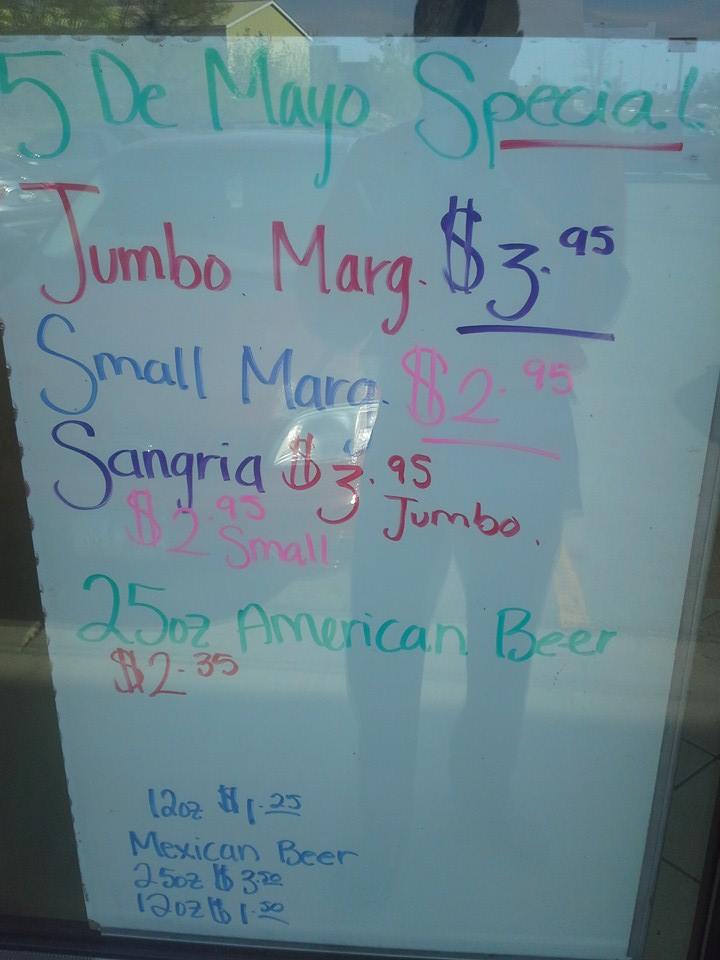 5 De Mayo Special
Jumbo Marg. $3.95
Small Marg. $2.95
Sangria $3.95
Jumbo.
$2.95
Small
25oz American Beer
$2.35
12oz $1.25
Mexican Beer
25oz $3.50
12oz $1.50